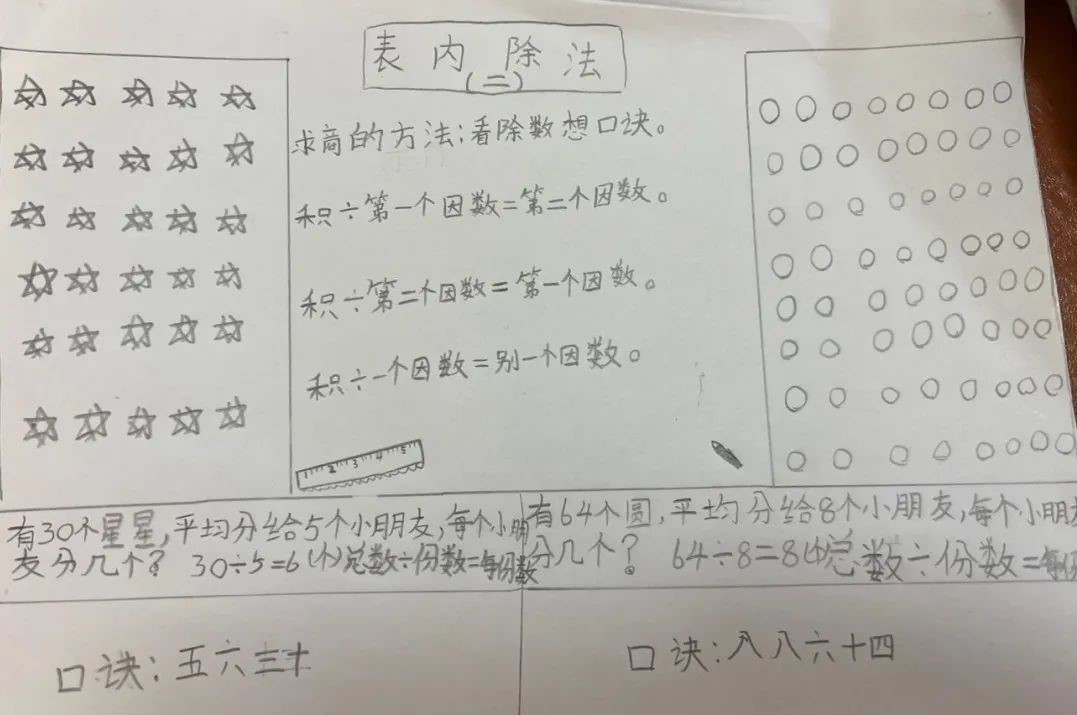 表内除法
(二)
求商的方法:看除数想口诀。
积÷第一个因数=第二个因数。
积÷第二个因数=第一个因数。
积÷一个因数=别一个因数。
1 2 3 4 5
有30个星星,平均分给5个小朋友,每个小朋
友分几个? 30÷5=6(个)总数÷份数=每份数
有64个圆,平均分给8个小朋友,每个小朋友
分几个? 64÷8=8(个)总数÷份数=每份
口诀:五六三十
口诀:八八六十四